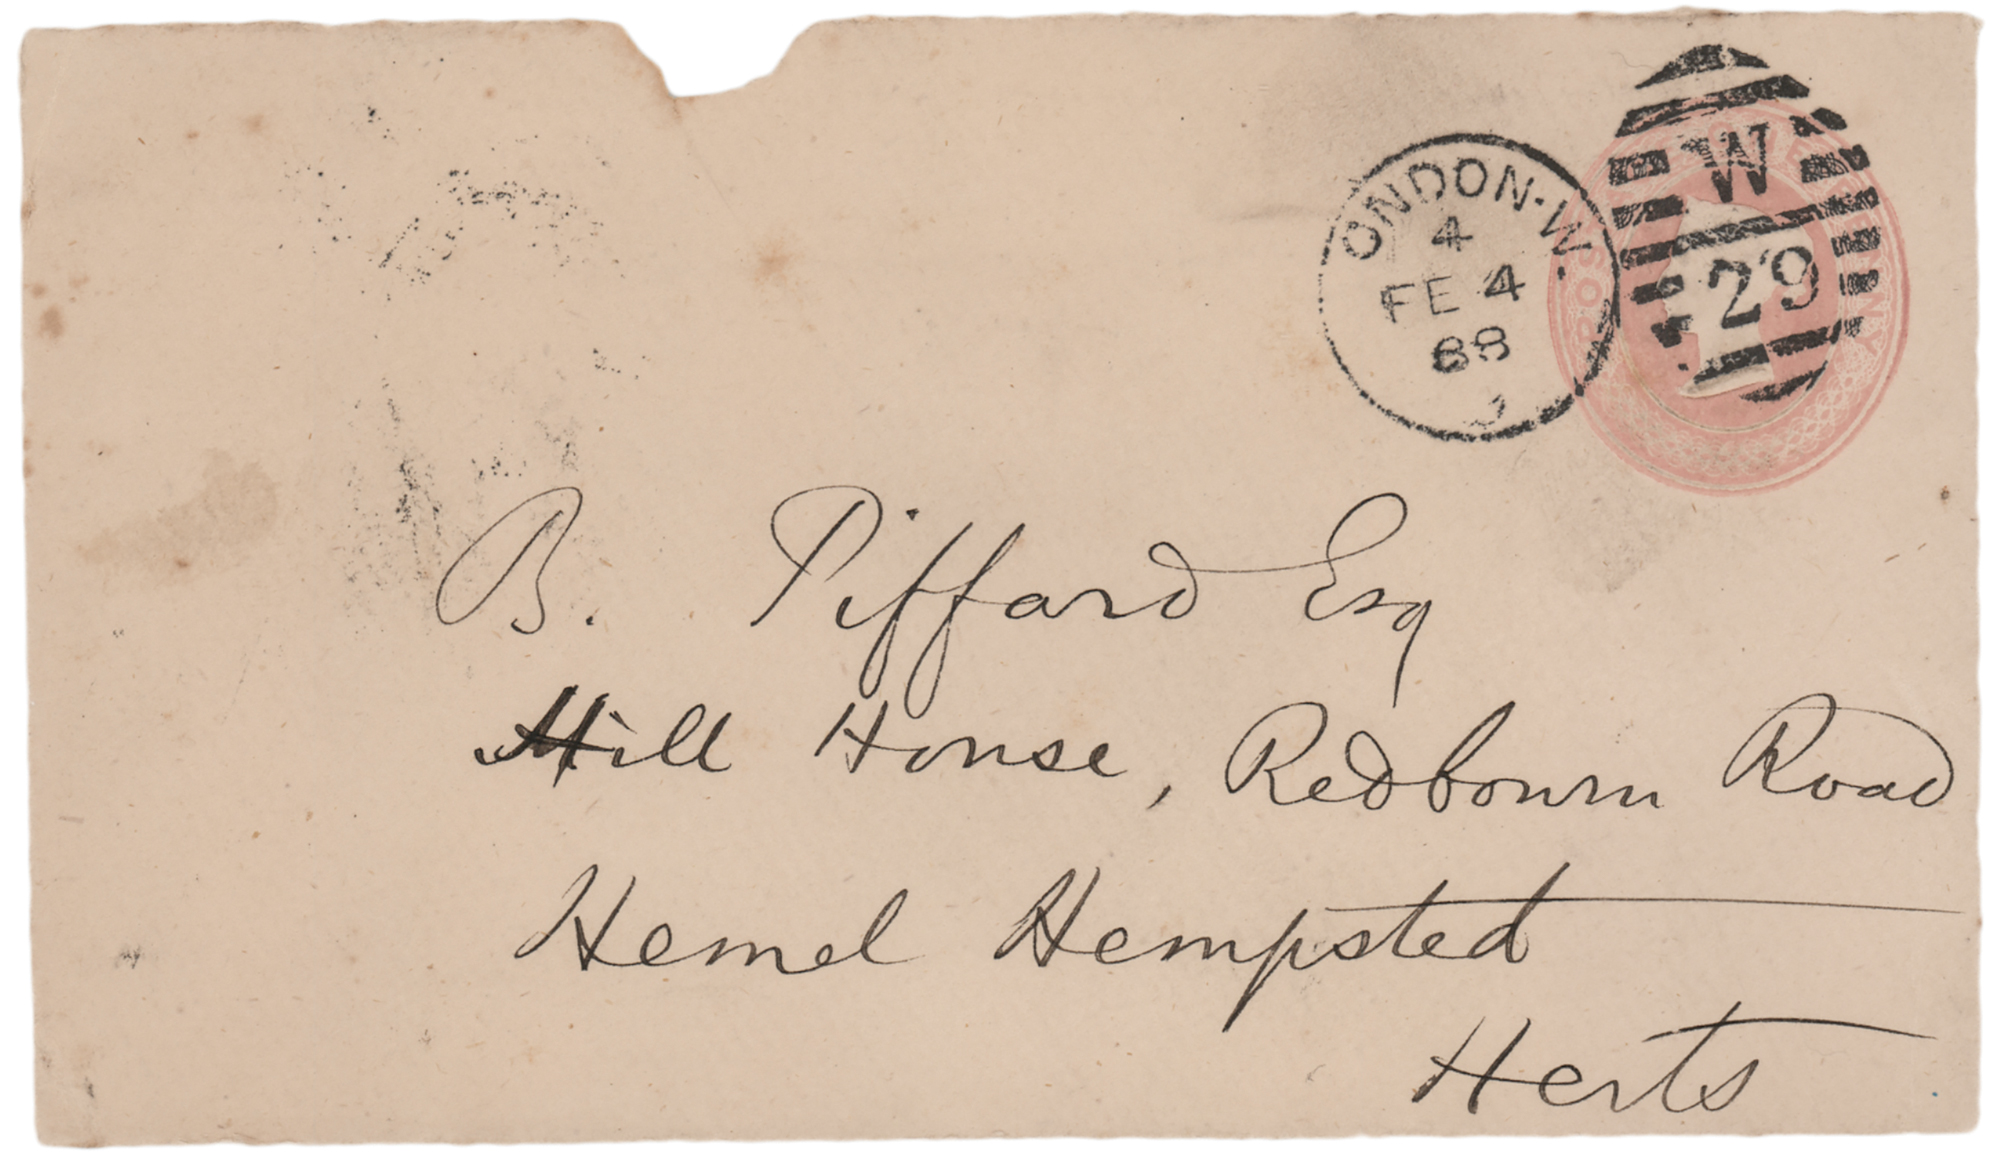 LONDON·W.
4
FE 4
88
W
29
POSTAGE ONE PENNY
B. Piffard Esq
Hill House, Redbourn Road
Hemel Hempsted
Herts